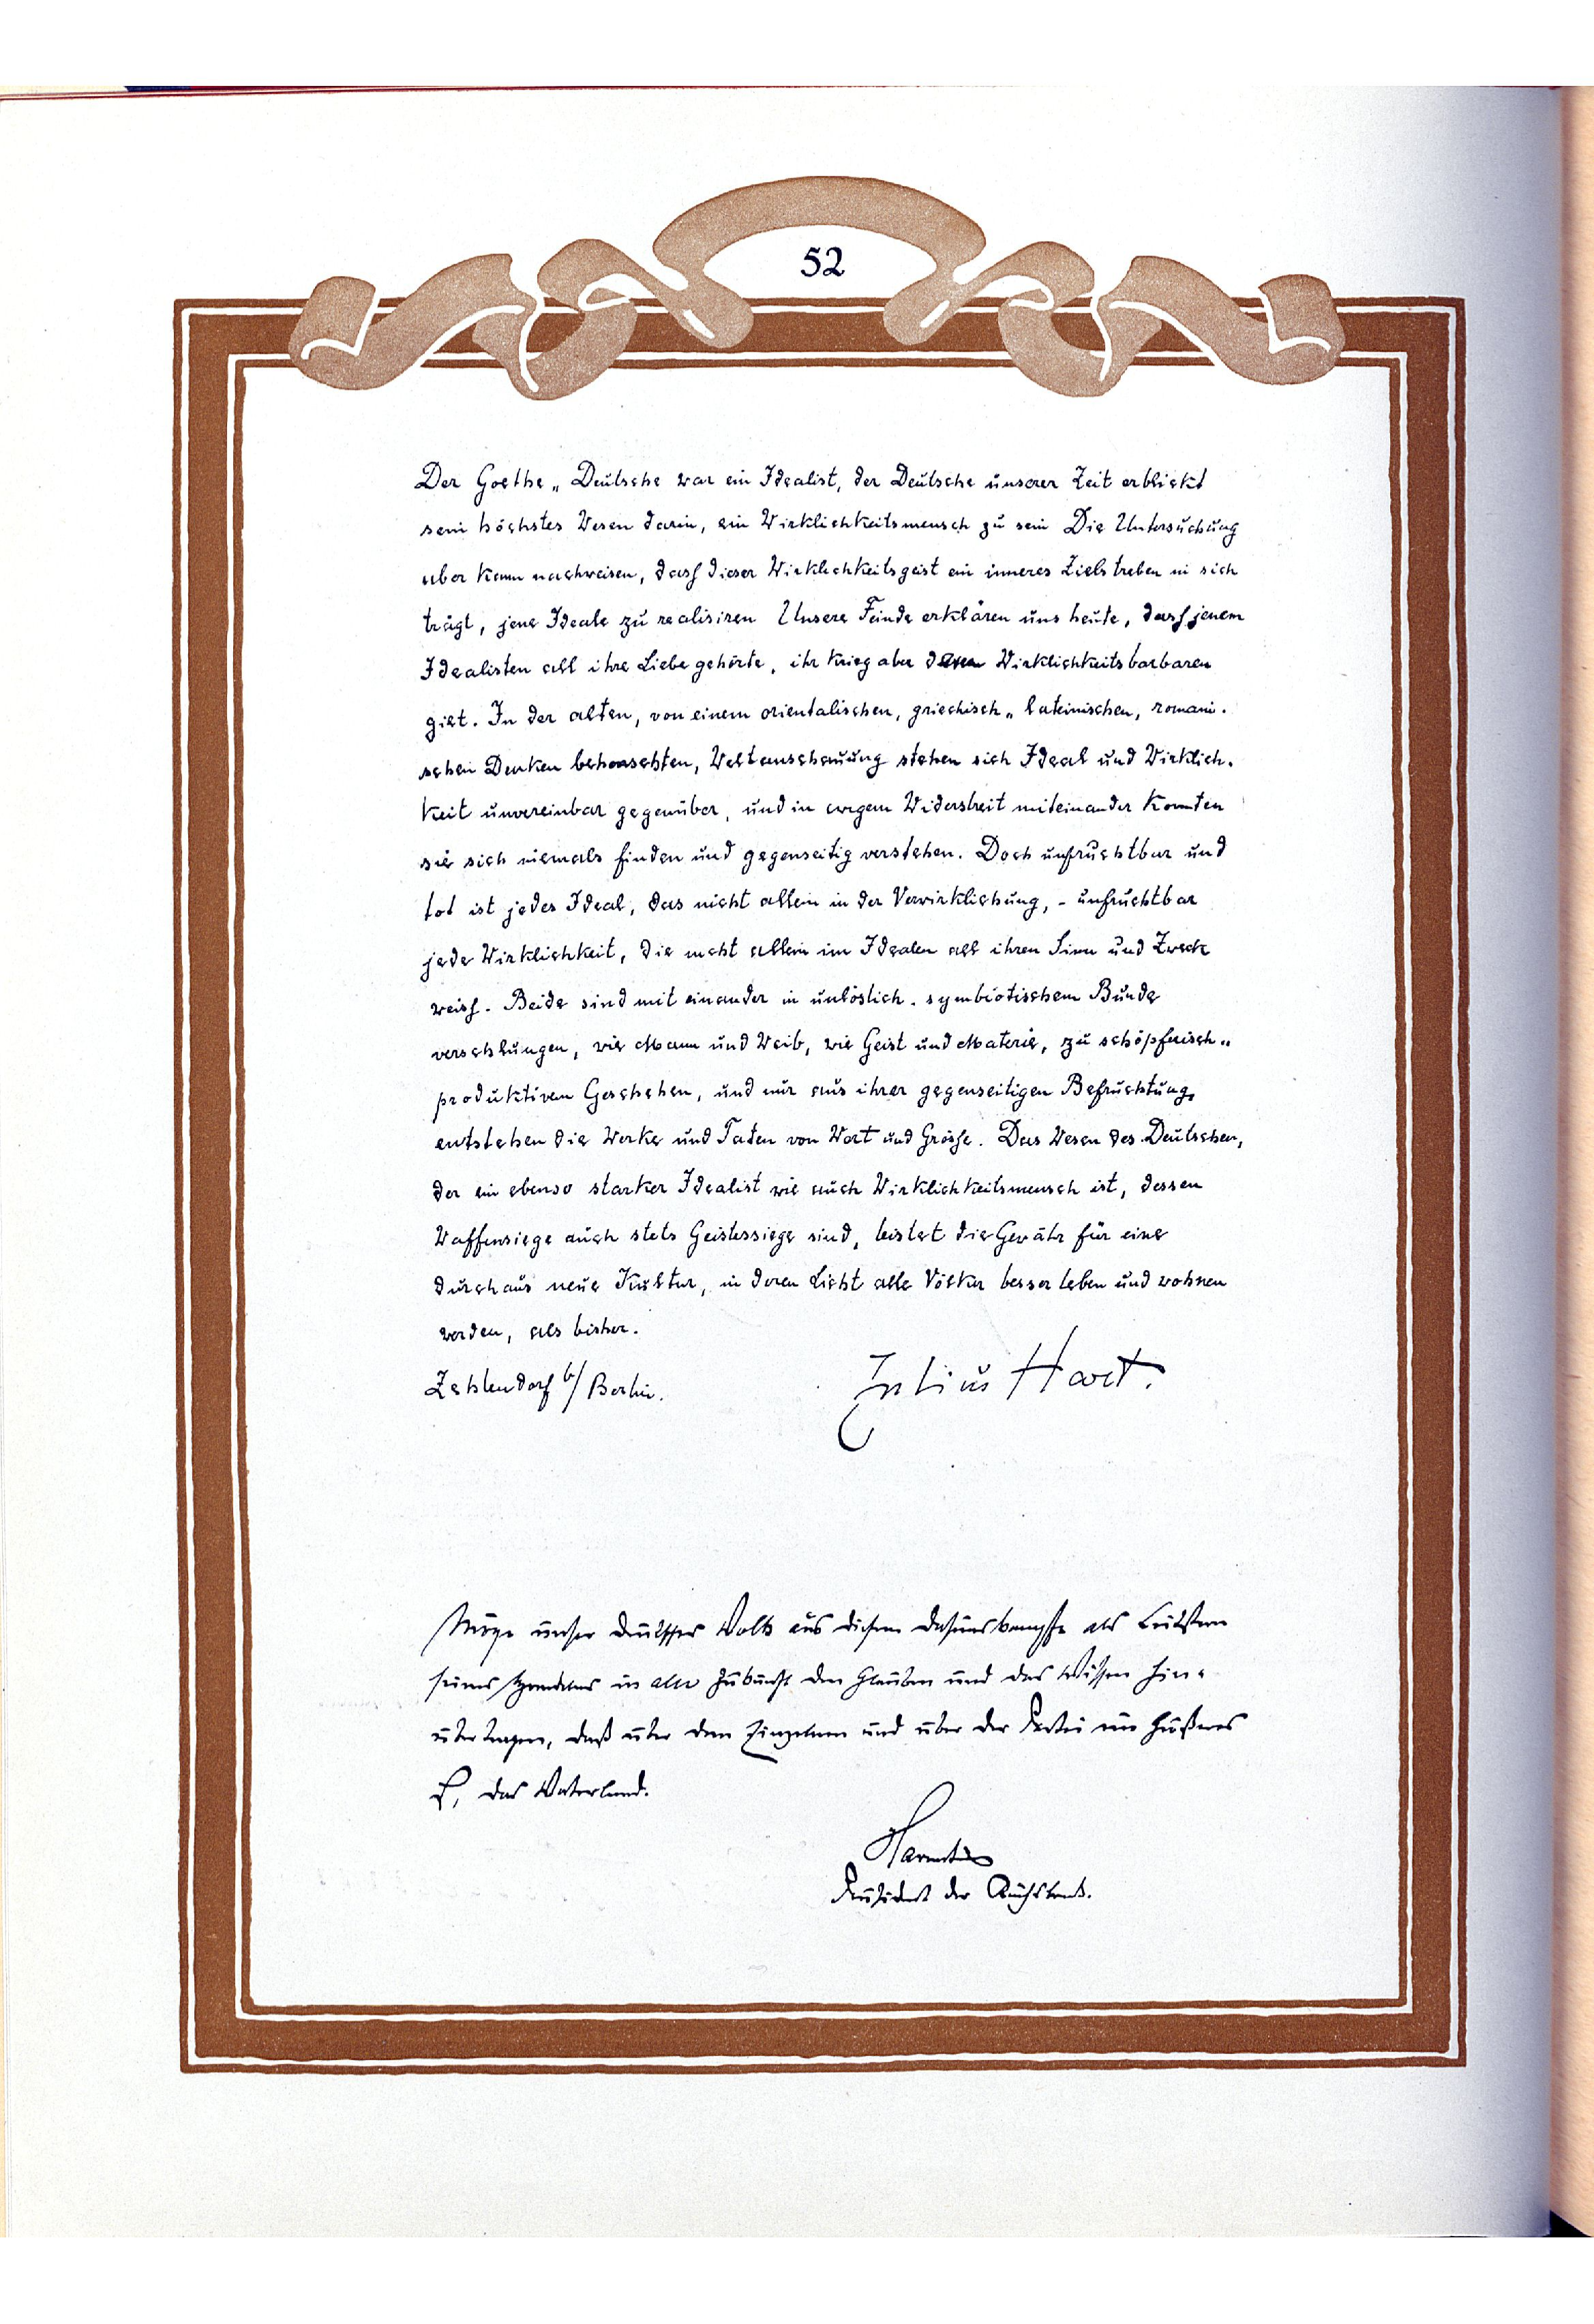 52
Der Goethe „ Deutsche war ein Idealist, der Deutsche unserer Zeit erblickt
sein höchstes Wesen darin, ein Wirklichkeitsmensch zu sein Die Untersuchung
aber kann nachweisen, dass dieser Wirklichkeitsgeist ein inneres Zielstreben in sich
trägt, jene Ideale zu realisiren Unsere Feinde erklären uns heute, dass jenem
Idealisten all ihre Liebe gehörte, ihr Krieg aber dem Wirklichkeitsbarbaren
gilt. In der alten, von einem orientalischen, griechisch „ lateinischen, romani-
schen Denken beherrschten, Weltanschauung stehen sich Ideal und Wirklich-
keit unvereinbar gegenüber, und in ewigem Widerstreit miteinander konnten
sie sich niemals finden und gegenseitig verstehen. Doch unfruchtbar und
tot ist jedes Ideal, das nicht allein in der Verwirklichung, - unfruchtbar
jede Wirklichkeit, die nicht allein im Idealen all ihren Sinn und Zweck
weiss. Beide sind mit einander in unlöslich - symbiotischem Bunde
verschlungen, wie Mann und Weib, wie Geist und Materie, zu schöpferisch „
produktivem Geschehen, und nur aus ihrer gegenseitigen Befruchtung
entstehen die Werke und Taten von Wert und Grösse. Das Wesen des Deutschen,
der ein ebenso starker Idealist wie auch Wirklichkeitsmensch ist, dessen
Waffensiege auch stets Geistessiege sind, leistet die Gewähr für eine
durchaus neue Kultur, in deren Licht alle Völker besser leben und wohnen
werden, als bisher.
Zehlendorf b/ Berlin.
Julius Hart.
Möge unser deutsches Volk aus diesem Daseinskampfe als Leitstern
seines Handelns in alle Zukunft den Glauben und das Wissen hin-
übertragen, daß über dem Einzelnen und über der Partei ein Größeres
ist, das Vaterland.
Havenstein
Präsident der Reichsbank.